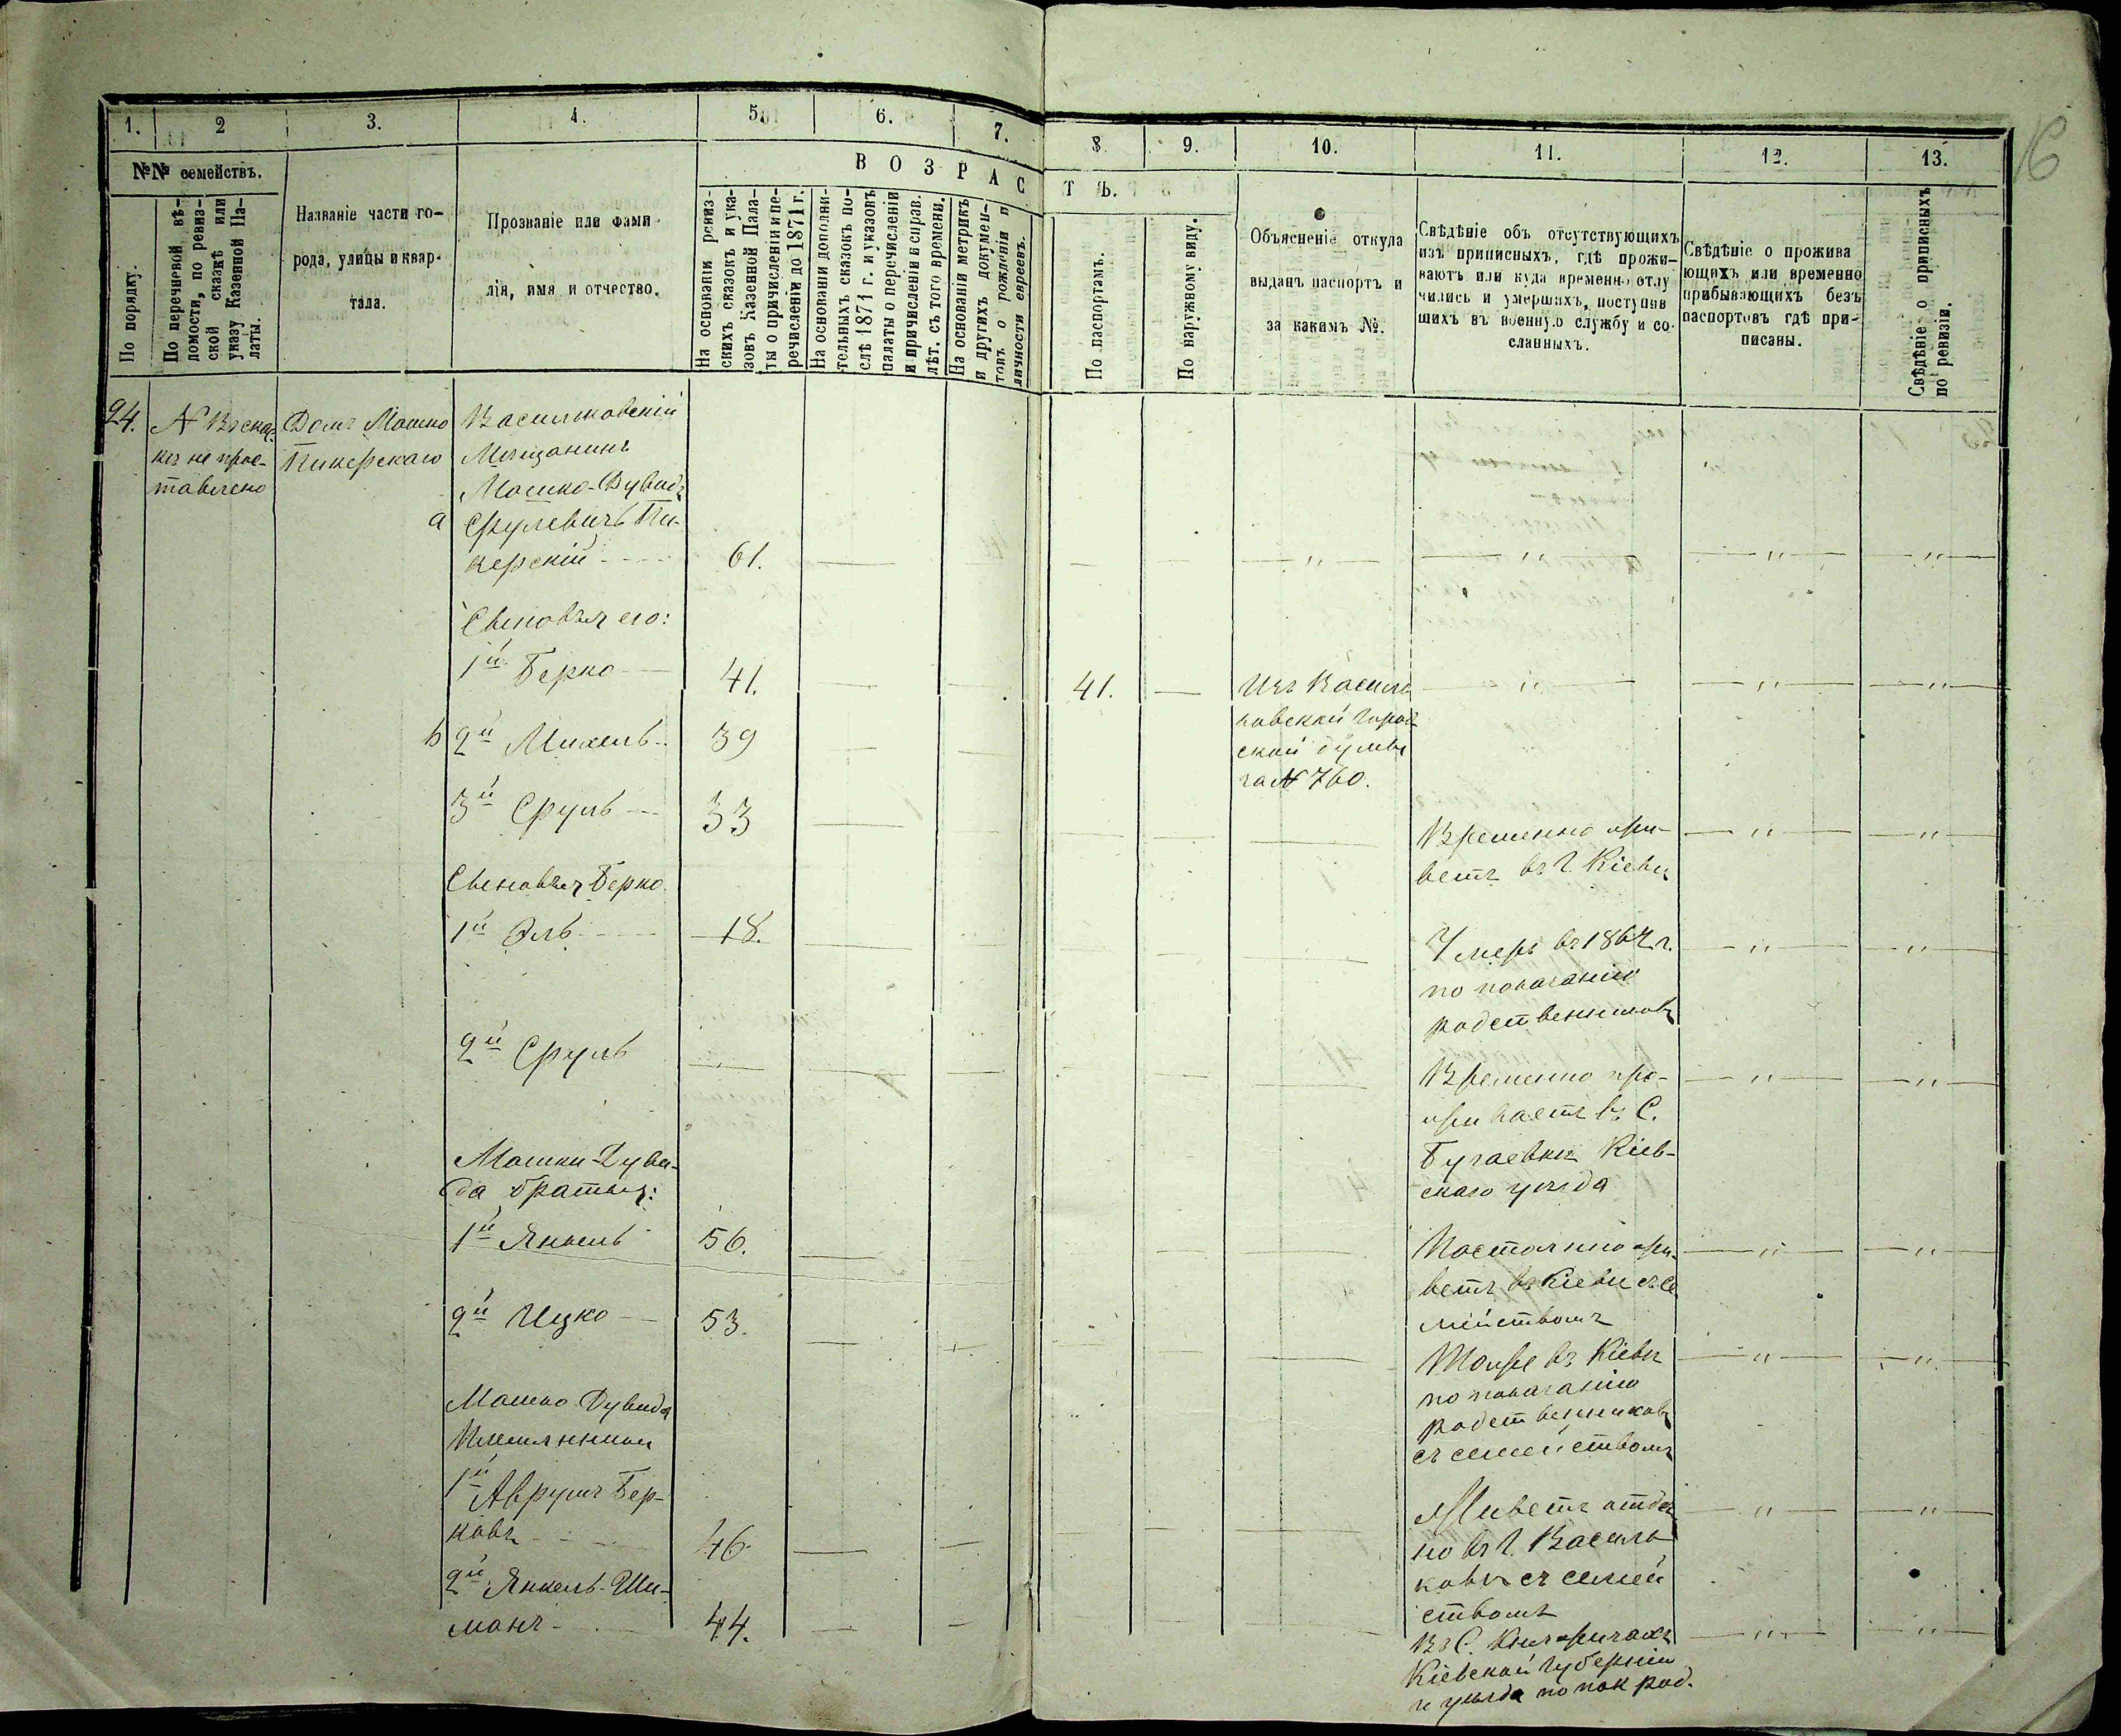 16
1. 2 3. 4. 5. 6. 7. 8 9. 10. 11. 12. 13.
№№ семействъ.
По порядку.
По перечневой вѣ-
домости, по ревиз-
ской сказкѣ или
указу Казенной Па-
латы.
Названіе части го-
рода, улицы и квар-
тала.
Прозваніе или фами-
лія, имя и отчество.
ВОЗРАС
ТЪ.
На основаніи ревиз-
скихъ сказокъ и ука-
зовъ Казенной Пала-
ты о причисленіи и пе-
речисленіи до 1871 г.
На основаніи дополни-
тельныхъ сказокъ по-
слѣ 1871 г. и указовъ
палаты о перечисленіи
и причисленіи и справ.
лѣт. съ того времени.
На основаніи метрикъ
и другихъ докумен-
товъ о рожденіи и
личности евреевъ.
По паспортамъ.
По наружному виду.
Объясненіе откуда
выданъ паспортъ и
за какимъ №.
Свѣдѣніе объ отсутствующихъ
изъ приписныхъ, гдѣ прожи-
ваютъ или куда временно отлу
чились и умершихъ, поступив
шихъ въ военную службу и со-
сланныхъ.
Свѣдѣніе о прожива
ющихъ или временно
прибывающихъ безъ
паспортовъ гдѣ при-
писаны.
Свѣдѣніе о приписныхъ
по ревизіи.
24. № Въ сказ-
кѣ не прос-
тавлено
Домъ Мошко
Пикерскаго
Васильковскій
Мѣщанинъ
Мошко-Дувидъ
а Срулевичъ Пи-
керскій 61. — — — — — " — — " — — " — — " —
Сыновья его:
1й Берко — 41. — — 41. — Изъ Василь — " — — " — — " —
ковской Город
ской думы
за № 760.
b 2й Михель 39 — —
3й Сруль — 33 — — — — — Временно жи- — " — — " —
ветъ въ г. Кіевѣ
Сыновья Берко
1й Эль 18. — — — — — Умеръ въ 1867 г. — " — — " —
по показанію
родственниковъ
2й Сруль — — — — — — Временно про- — " — — " —
живаетъ въ С.
Бугаевкѣ Кіев-
скаго уѣзда
Мошки-Дуви-
да братья:
1й Янкель 56. — — — — Постоянно жи- — " — — " —
ветъ въ Кіевѣ съ се
мействомъ
2й Ицко — 53. — — — — — Тоже въ Кіевѣ — " — — " —
по показанію
родственниковъ
съ семействомъ
Мошко Дувида
Племянники
1й Аврумъ Бер-
ковъ 46. — — — — — Живетъ отдѣль — " — — " —
но въ г. Василь
ковѣ съ семей
ствомъ
2й Янкель-Ши-
монъ 44. — — — — — Въ С. Княжичахъ — " — — " —
Кіевской Губерніи
и уѣзда по пок род.